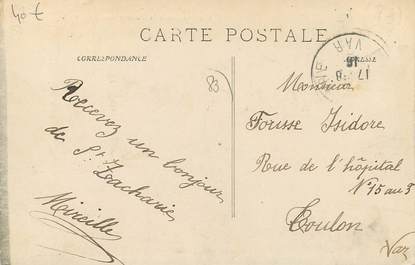 40 €
CARTE POSTALE
CORRESPONDANCE
ADRESSE
VAR
17 - 8
16
83
Recevez un bonjour
de St Zacharie
Mireille
Monsieur
Fousse Isidore
Rue de l'hôpital
N° 15 au 3
Toulon
Var